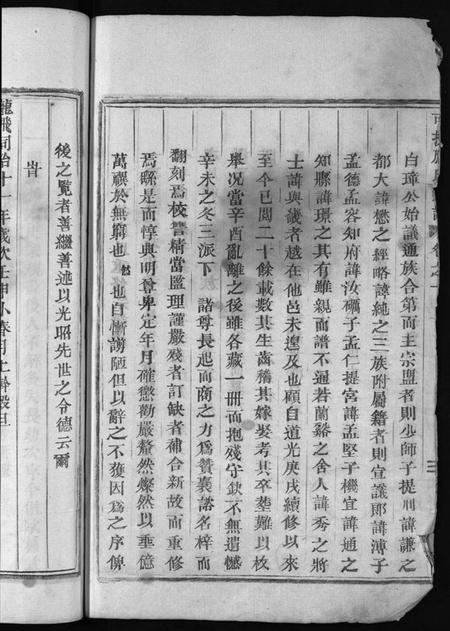 白璋公始議通族合第而主宗盟者則少師子提刑諱謙之
都大諱懋之經略諱純之三族附屬籍者則宣議郎諱溥子
孟德孟容知府諱汝礪子孟仁提宮諱孟堅子機宜諱通之
知縣諱璟之其有雖親而譜不通若蘭谿之舍人諱秀之將
士諱與議者越在他邑未遑及也顧自道光庚戌續修以來
至今已閲二十餘載數其生齒稽其嫁娶考其卒塟難以枚
舉况當辛酉亂離之後雖各藏一冊而抱殘守缺不無遺憾
辛未之冬三派下 諸尊長起而商之力爲贊襄諾名梓而
翻刻焉校讐精當監理謹嚴殘者訂缺者補合新故而重修
焉繇是而惇典明尊卑定年月確懲勸嚴釐然燦然以垂億
萬禩於無窮也 然也自慚謭陋但以辭之不獲因爲之序俾
後之覽者善繼善述以光昭先世之令德云爾
旹
龍飛同治十一年歲次壬申小春月上澣穀旦
卷之一
三